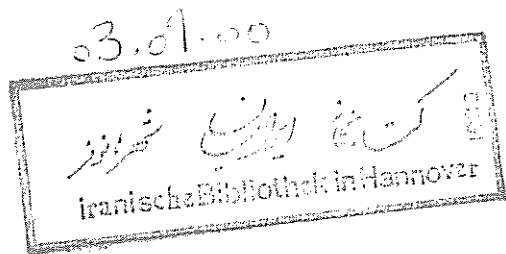 03.01.00
کتابخانه هانوفر
iranische Bibliothek in Hannover